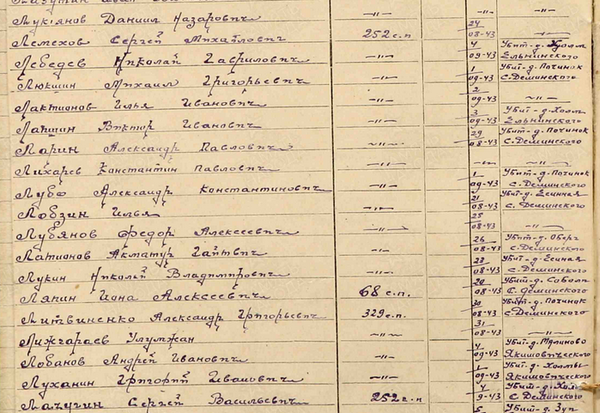 Лукуянов Даниил Назарович —"— —"—
Лемехов Сергей Михайлович 252 с.п. 24 08-43 —"—
Лебедев Николай Гаврилович —"— 4 09-43 Убит-д. Холм Ельнинского
Люкшин Михаил Григорьевич —"— 1 09-43 Убит-д. Починок С-Деминского
Лактионов Илья Иванович —"— 2 09-43 —"—
Лапшин Виктор Иванович —"— 3 09-43 Убит-д. Холм Ельнинского
Ларин Александр Павлович —"— 29 08-43 Убит-д. Починок С-Деминского
Лихарев Константин Павлович —"— —"— —"—
Лубо Александр Константинович —"— 1 09-43 Убит-д. Починок С-Деминского
Лобзин Илья —"— 21 08-43 Убит-д. С-Деминского
Лубянов Федор Алексеевич —"— 25 08-43 —"—
Латионов Акматур —"— 26 08-43 Убит-д. С-Деминского
Лукин Николай Владимирович —"— 23 08-43 Убит-д. С-Деминского
Лякин Иона Алексеевич 68 с.п. 08-43 Убит-д. С-Деминского
Литвиненко Александр Григорьевич 329 с.п. 30 08-43 Убит-д. Починок С-Деминского
Лижгараев Улумжан —"— 31 08-43 —"—
Лобанов Андрей Иванович —"— 4 09-43 Убит-д. Якимовического
Луханин Григорий Иванович —"— 1 09-43 Убит-д. Якимовического
Лачугин Сергей Васильевич 252 с.п. 4 09-43 Убит-д. Холм С-Деминского
5 Убит-д.